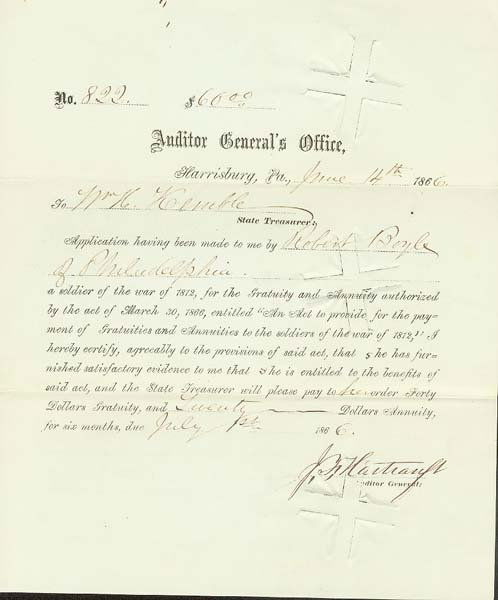 No. 822. $60 00
Auditor General's Office,
Harrisburg, Pa., June 14th 1866.
To Wm H. Kemble
State Treasurer:
Application having been made to me by Robert Boyle
of Philadelphia.
a soldier of the war of 1812, for the Gratuity and Annuity authorized
by the act of March 30, 1866, entitled "An Act to provide for the pay-
ment of Gratuities and Annuities to the soldiers of the war of 1812," I
hereby certify, agreeably to the provisions of said act, that she has fur-
nished satisfactory evidence to me that she is entitled to the benefits of
said act, and the State Treasurer will please pay to her order Forty
Dollars Gratuity, and Twenty Dollars Annuity,
for six months, due July 1st 1866.
J. F. Hartranft
Auditor General.